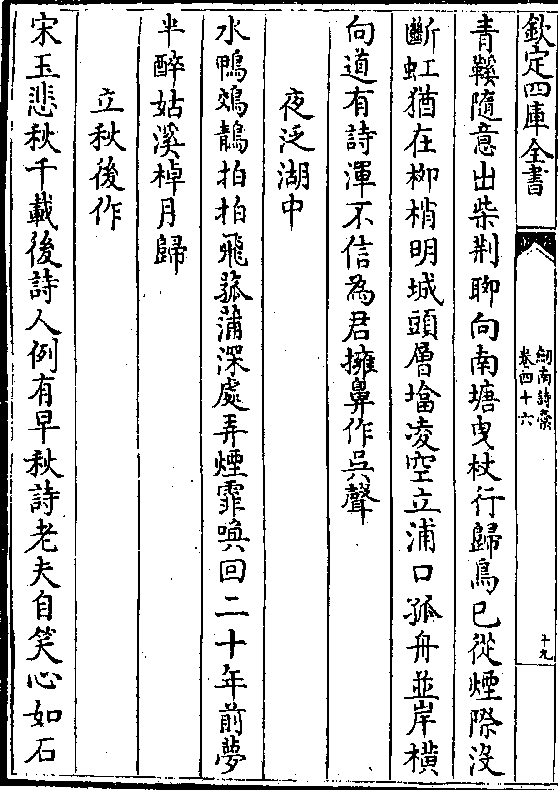 欽定四庫全書
劍南詩藁
卷四十六
十九
青鞵隨意出柴荆聊向南塘曳杖行歸鳥已從煙際没
斷虹猶在柳梢明城頭層㙮凌空立浦口孤舟並岸横
向道有詩渾不信為君擁鼻作吳聲
夜泛湖中
水鴨鵁鶄拍拍飛菰蒲深處弄煙霏喚回二十年前夢
半醉姑溪棹月歸
立秋後作
宋玉悲秋千載後詩人例有早秋詩老夫自笑心如石